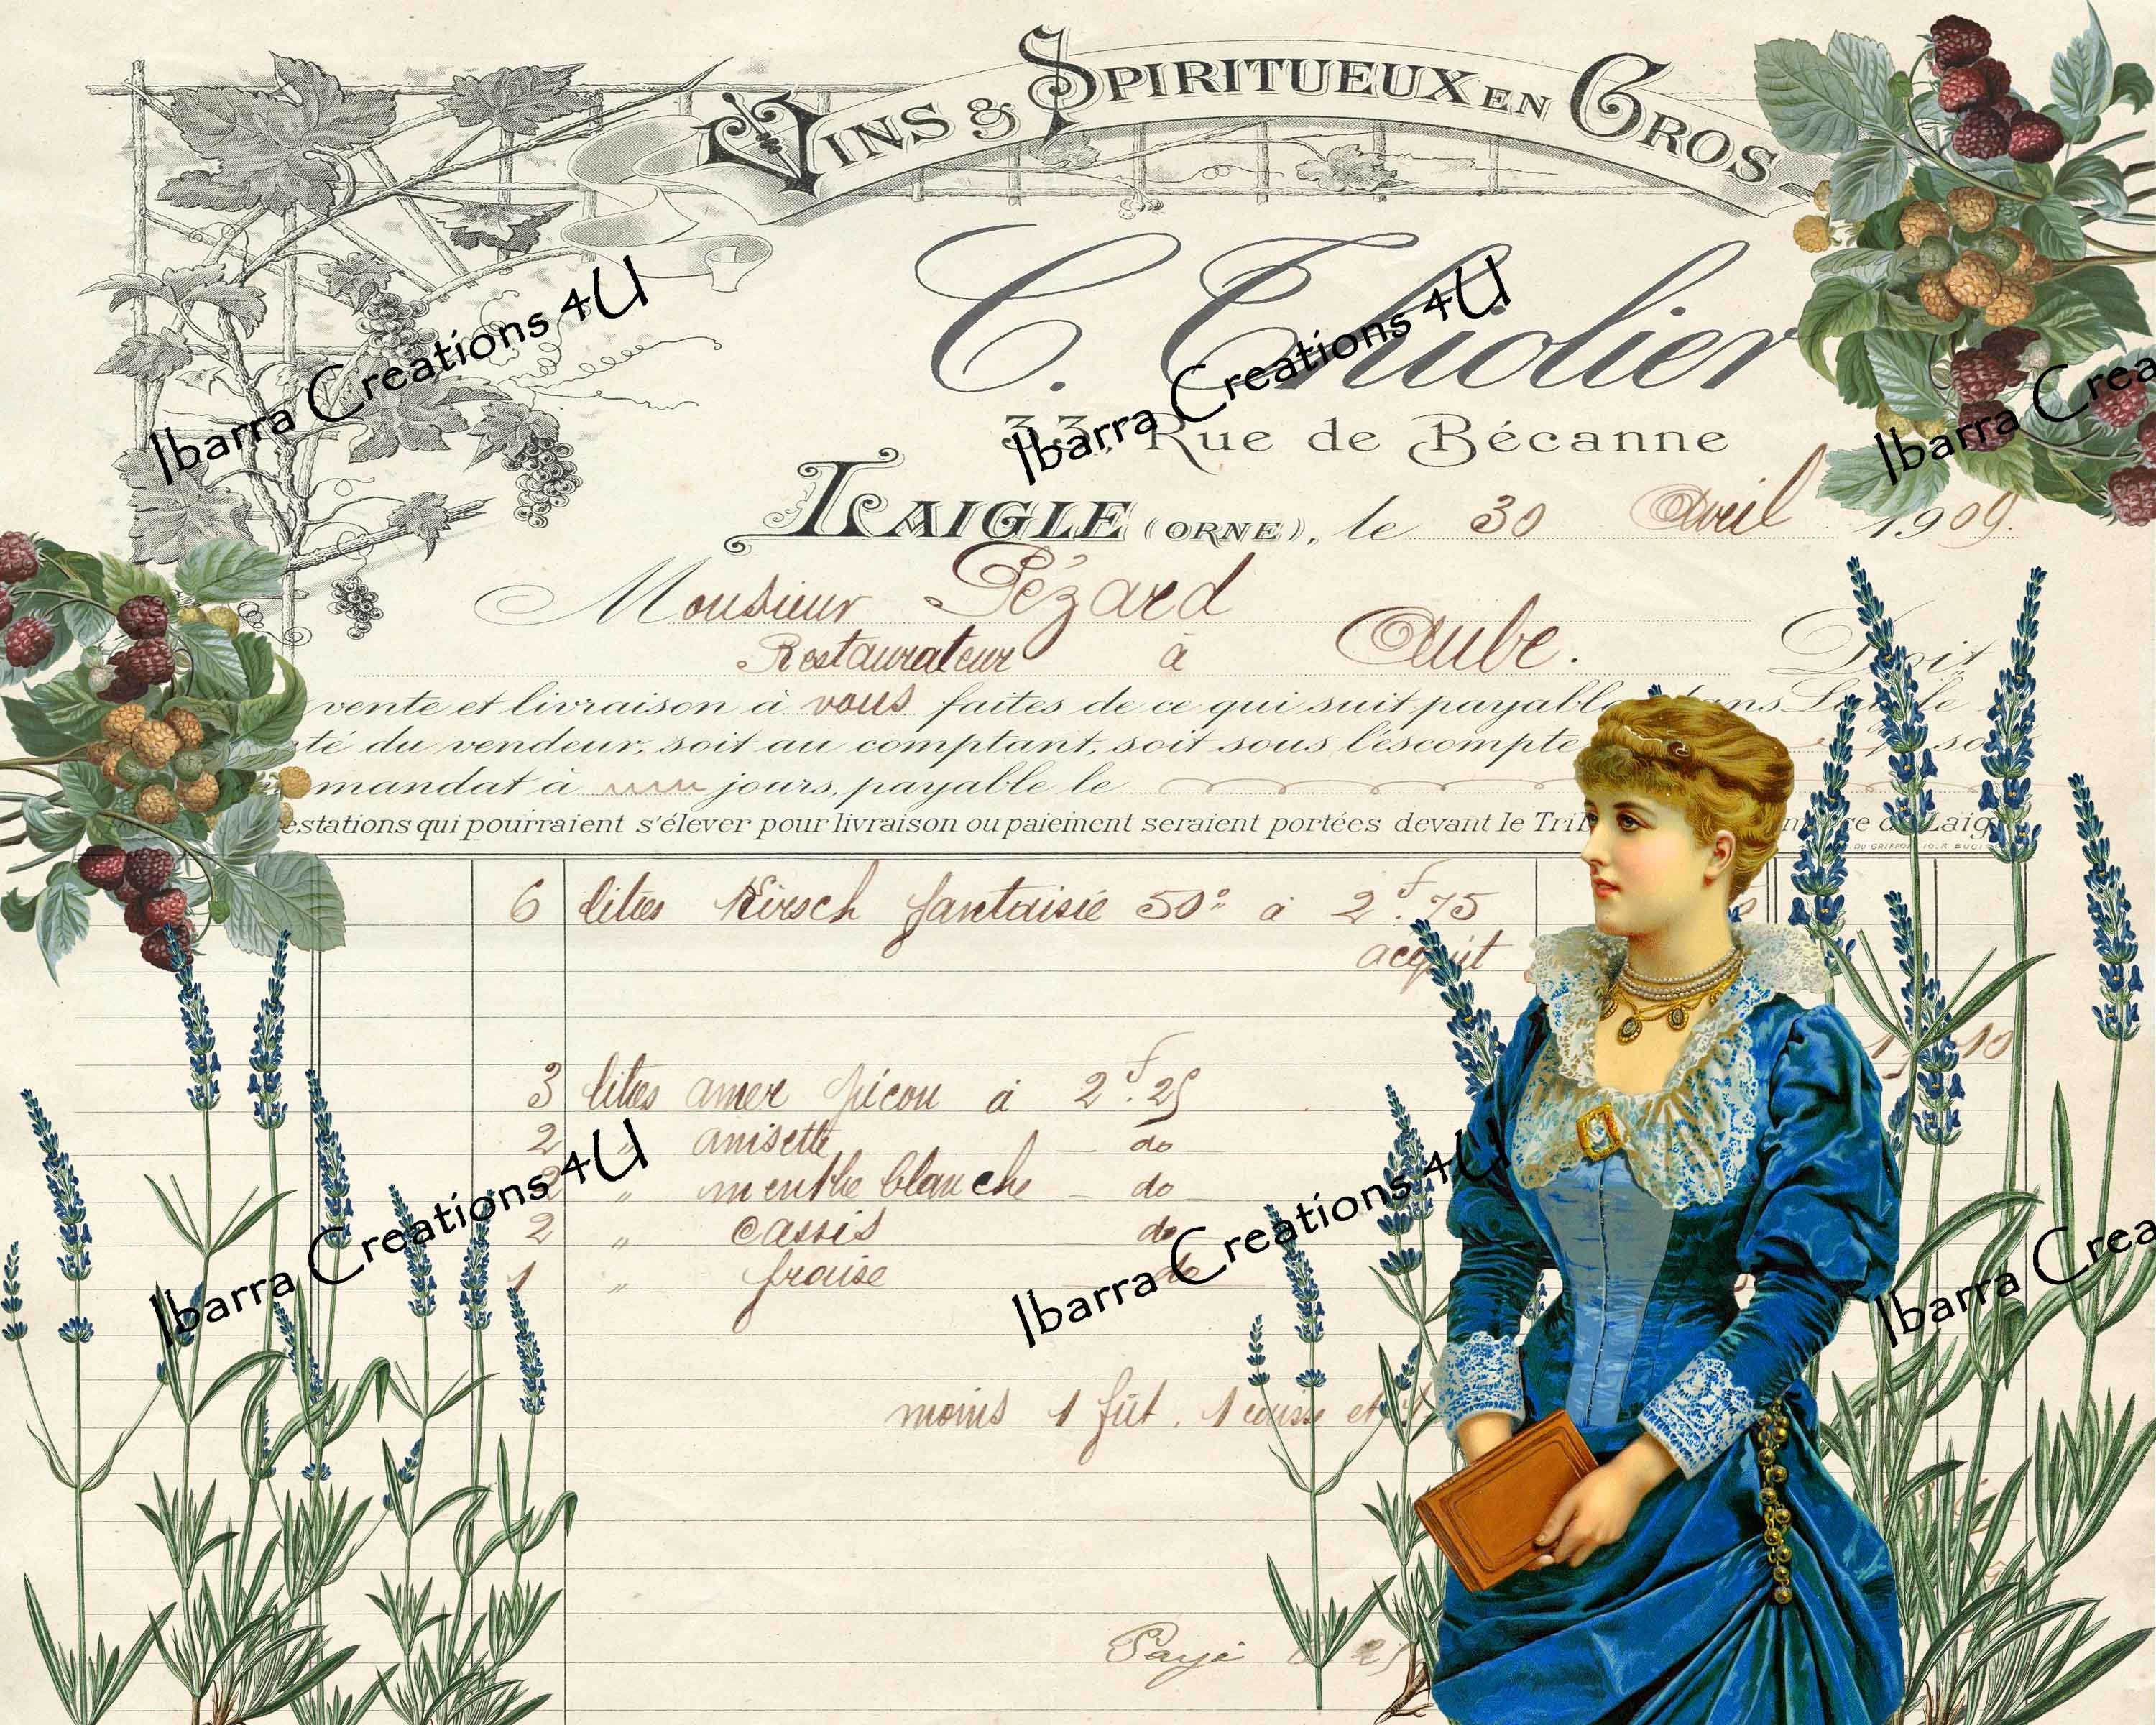 VINS & SPIRITUEUX EN GROS
C. Thiolier
33, Rue de Bécanne
LAIGLE (ORNE), le 30 Avril 1909.
Monsieur Pézard
Restaurateur à Aube. Doit
vente et livraison à vous faites de ce qui suit payable dans
té du vendeur, soit au comptant, soit sous l'escompte
mandat à jours, payable le
estations qui pourraient s'élever pour livraison ou paiement seraient portées devant le
6 litres Kirsch fantaisie 50° à 2f.75
acquit
3 litres amer picon à 2f.25
2 " anisette do
2 " menthe blanche do
2 " cassis do
1 " fraise do
moins 1 fût, 1 et
Payé
Ibarra Creations 4U
Ibarra Creations 4U
Ibarra Crea
Ibarra Creations 4U
Ibarra Creations 4U
Ibarra Crea